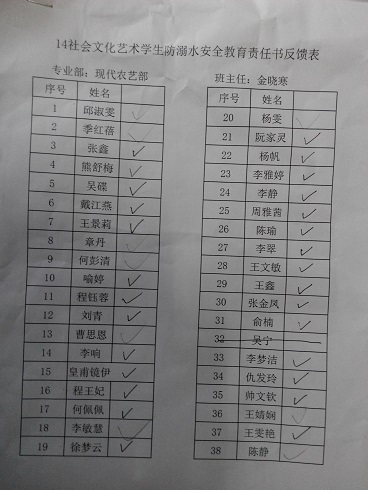 14社会文化艺术学生防溺水安全教育责任书反馈表
专业部：现代农艺部
班主任：金晓寒
序号 姓名
1 邱淑雯
2 季红蓓
3 张鑫
4 熊舒梅
5 吴碟
6 戴江燕
7 王景莉
8 章丹
9 何彭清
10 喻婷
11 程钰蓉
12 刘青
13 曹思恩
14 李响
15 皇甫镜伊
16 程王妃
17 何佩佩
18 李敏慧
19 徐梦云
序号 姓名
20 杨雯
21 阮家灵
22 杨帆
23 李雅婷
24 李静
25 周雅茜
26 陈瑜
27 李翠
28 王文敏
29 王鑫
30 张金凤
31 俞楠
32 吴宁
33 李梦洁
34 仇发玲
35 帅文钦
36 王婧娴
37 王雯艳
38 陈静